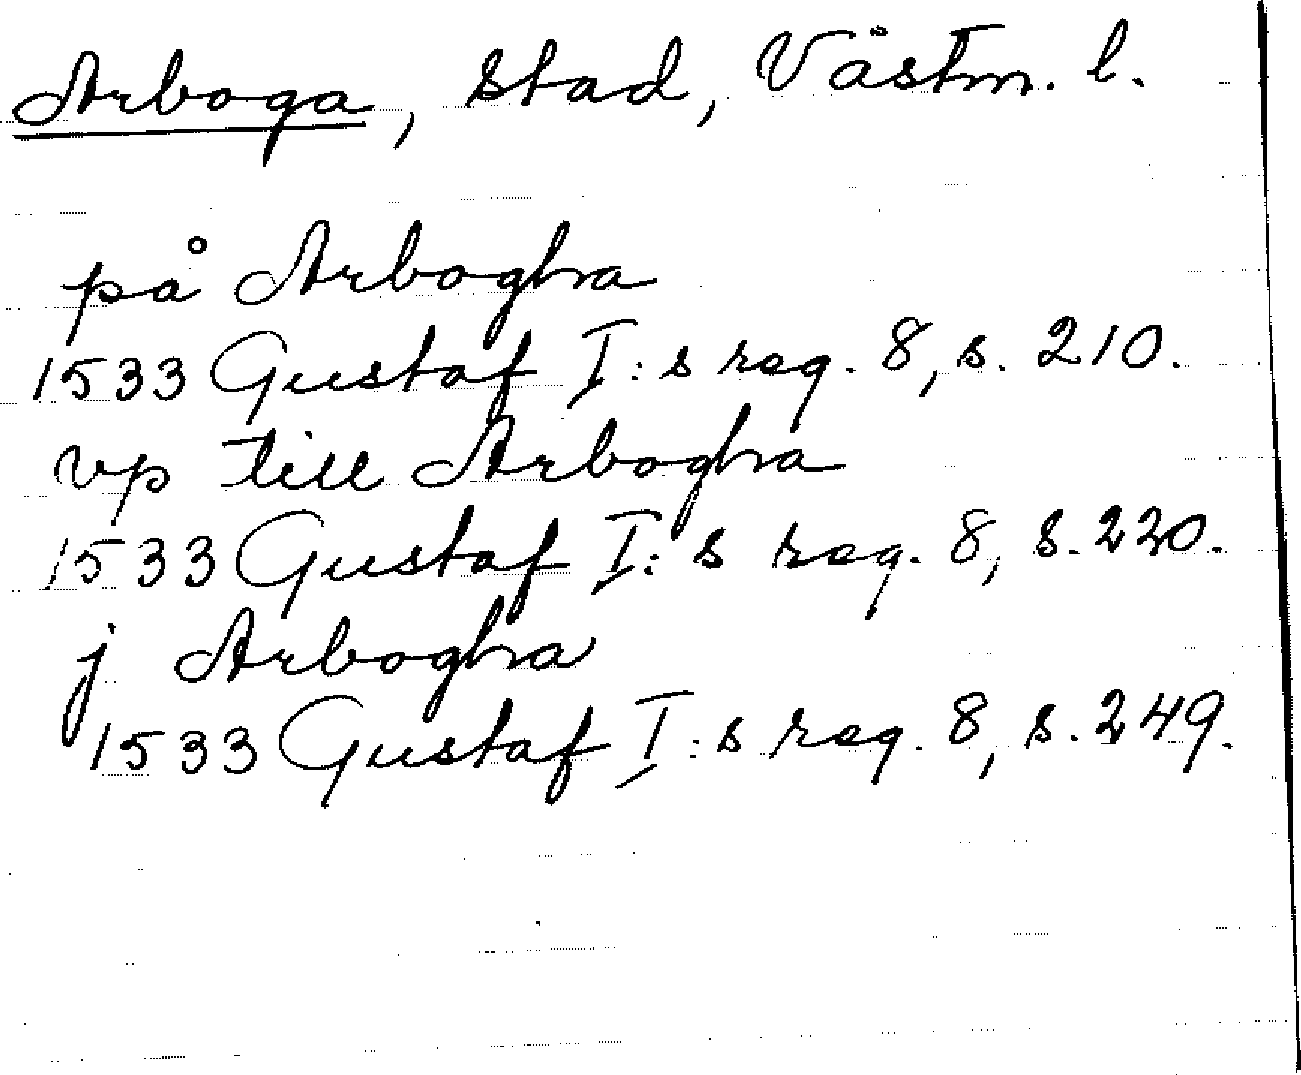 Arboga, stad, Västm. l.
på Arbogha
1533 Gustaf I:s reg. 8, s. 210.
vp till Arbogha
1533 Gustaf I:s reg. 8, s. 220.
j Arbogha
1533 Gustaf I:s reg. 8, s. 249.